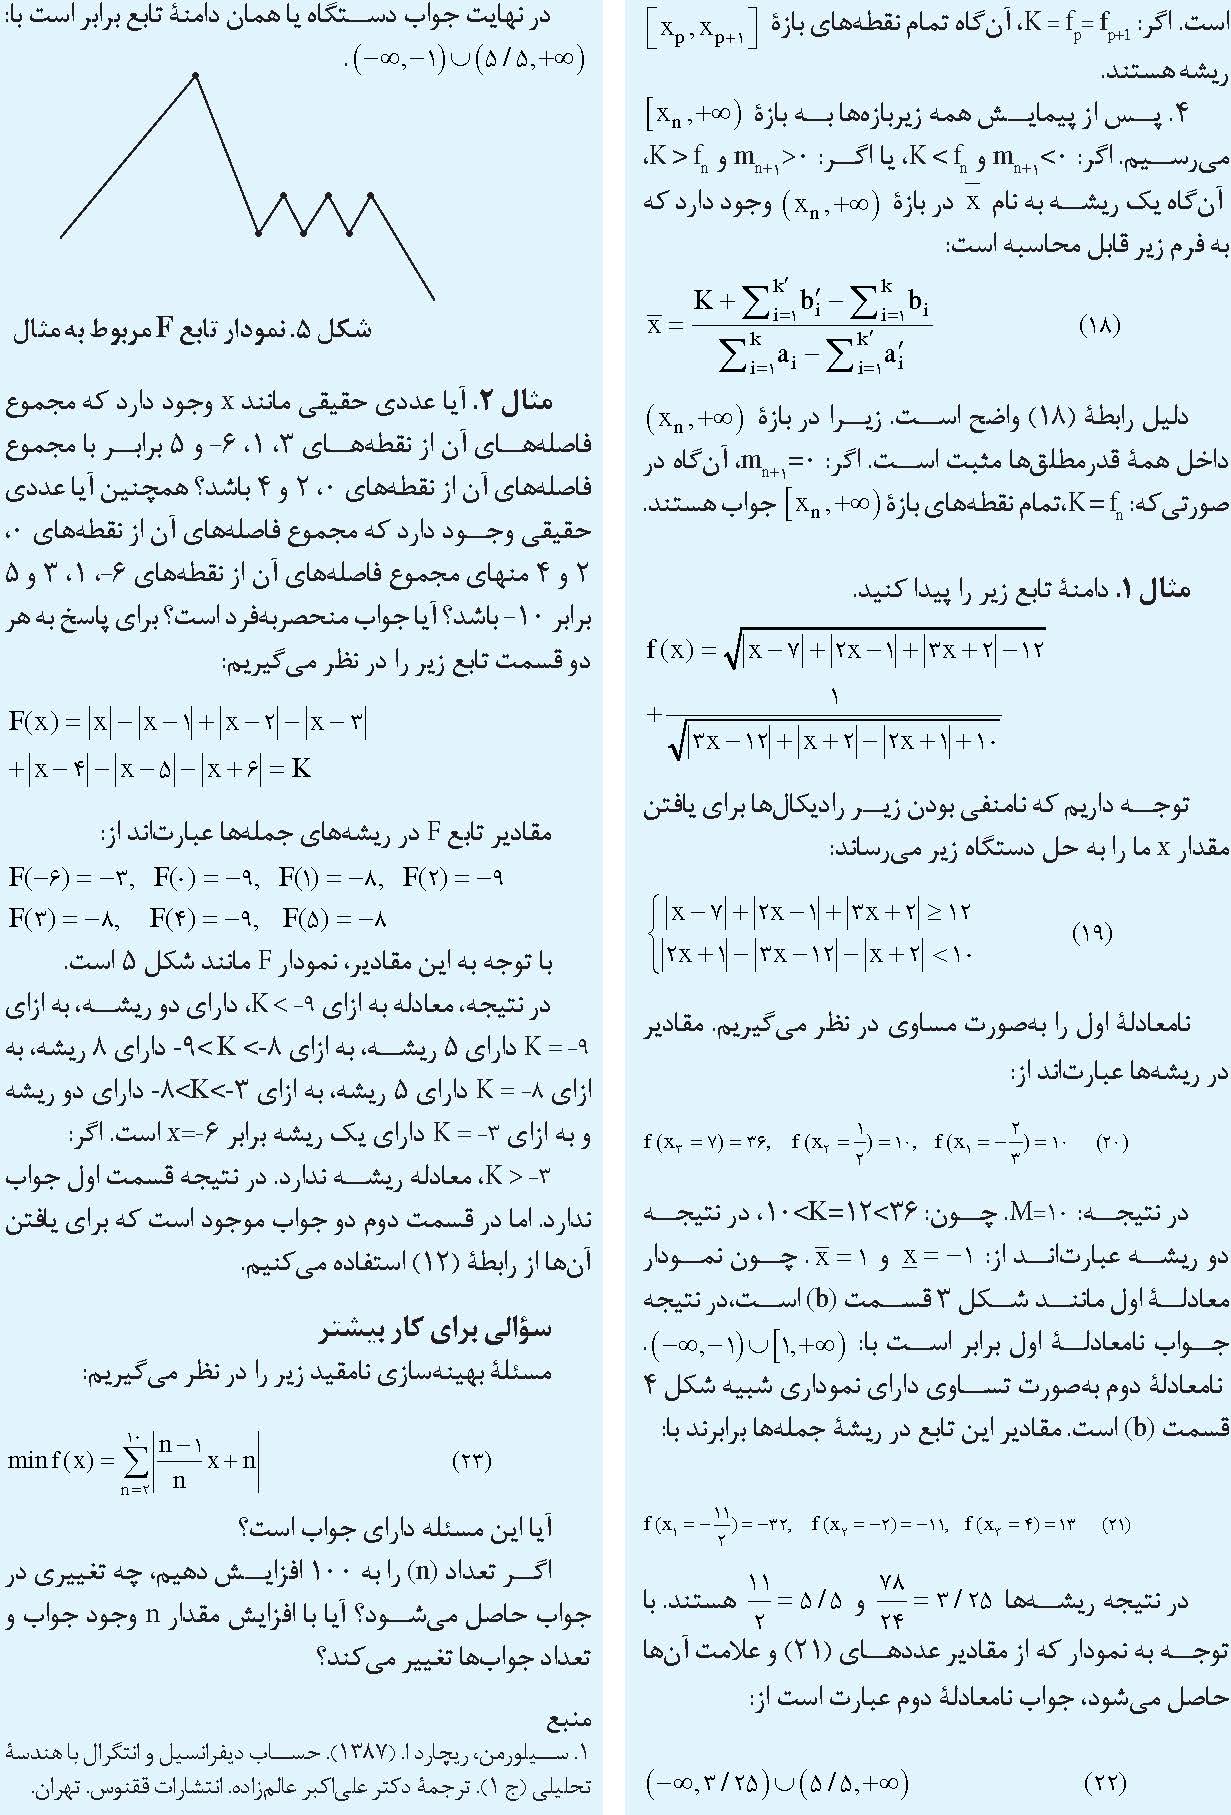 است. اگر: K = fₚ = fₚ₊₁، آن‌گاه تمام نقطه‌های بازهٔ [xₚ, xₚ₊₁]
ریشه هستند.
۴. پس از پیمایش همه زیربازه‌ها به بازهٔ [xₙ, +∞)
می‌رسیم. اگر: mₙ₊₁<۰ و K < fₙ، یا اگر: mₙ₊₁>۰ و K > fₙ،
آن‌گاه یک ریشه به نام x̄ در بازهٔ (xₙ, +∞) وجود دارد که
به فرم زیر قابل محاسبه است:
x̄ = (K + ∑_{i=۱}^{k′} b′ᵢ − ∑_{i=۱}^{k} bᵢ) / (∑_{i=۱}^{k} aᵢ − ∑_{i=۱}^{k′} a′ᵢ) (۱۸)
دلیل رابطهٔ (۱۸) واضح است. زیرا در بازهٔ (xₙ, +∞)
داخل همهٔ قدرمطلق‌ها مثبت است. اگر: mₙ₊₁=۰، آن‌گاه در
صورتی‌که: K = fₙ،تمام نقطه‌های بازهٔ [xₙ, +∞) جواب هستند.
مثال ۱. دامنهٔ تابع زیر را پیدا کنید.
f(x) = √(|x−۷|+|۲x−۱|+|۳x+۲|−۱۲)
+ ۱ / √(|۳x−۱۲|+|x+۲|−|۲x+۱|+۱۰)
توجه داریم که نامنفی بودن زیر رادیکال‌ها برای یافتن
مقدار x ما را به حل دستگاه زیر می‌رساند:
{ |x−۷|+|۲x−۱|+|۳x+۲| ≥ ۱۲
|۲x+۱|−|۳x−۱۲|−|x+۲| < ۱۰ (۱۹)
نامعادلهٔ اول را به‌صورت مساوی در نظر می‌گیریم. مقادیر
در ریشه‌ها عبارت‌اند از:
f(x₃ = ۷) = ۳۶, f(x₂ = ۱/۲) = ۱۰, f(x₁ = −۲/۳) = ۱۰ (۲۰)
در نتیجه: M=۱۰. چون: ۱۰<K=۱۲<۳۶، در نتیجه
دو ریشه عبارت‌اند از: x̲ = −۱ و x̄ = ۱. چون نمودار
معادلهٔ اول مانند شکل ۳ قسمت (b) است،در نتیجه
جواب نامعادلهٔ اول برابر است با: (−∞,−۱)∪[۱,+∞).
نامعادلهٔ دوم به‌صورت تساوی دارای نموداری شبیه شکل ۴
قسمت (b) است. مقادیر این تابع در ریشهٔ جمله‌ها برابرند با:
f(x₁ = −۱۱/۲) = −۳۲, f(x₂ = −۲) = −۱۱, f(x₃ = ۴) = ۱۳ (۲۱)
در نتیجه ریشه‌ها ۷۸/۲۴ = ۳/۲۵ و ۱۱/۲ = ۵/۵ هستند. با
توجه به نمودار که از مقادیر عددهای (۲۱) و علامت آن‌ها
حاصل می‌شود، جواب نامعادلهٔ دوم عبارت است از:
(−∞,۳/۲۵)∪(۵/۵,+∞) (۲۲)
در نهایت جواب دستگاه یا همان دامنهٔ تابع برابر است با:
(−∞,−۱)∪(۵/۵,+∞).
شکل ۵. نمودار تابع F مربوط به مثال
مثال ۲. آیا عددی حقیقی مانند x وجود دارد که مجموع
فاصله‌های آن از نقطه‌های ۳، ۱، ۶– و ۵ برابر با مجموع
فاصله‌های آن از نقطه‌های ۰، ۲ و ۴ باشد؟ همچنین آیا عددی
حقیقی وجود دارد که مجموع فاصله‌های آن از نقطه‌های ۰،
۲ و ۴ منهای مجموع فاصله‌های آن از نقطه‌های ۶–، ۱، ۳ و ۵
برابر ۱۰– باشد؟ آیا جواب منحصربه‌فرد است؟ برای پاسخ به هر
دو قسمت تابع زیر را در نظر می‌گیریم:
F(x) = |x|−|x−۱|+|x−۲|−|x−۳|
+|x−۴|−|x−۵|−|x+۶| = K
مقادیر تابع F در ریشه‌های جمله‌ها عبارت‌اند از:
F(−۶) = −۳, F(۰) = −۹, F(۱) = −۸, F(۲) = −۹
F(۳) = −۸, F(۴) = −۹, F(۵) = −۸
با توجه به این مقادیر، نمودار F مانند شکل ۵ است.
در نتیجه، معادله به ازای K < −۹، دارای دو ریشه، به ازای
K = −۹ دارای ۵ ریشه، به ازای -۹<K <-۸ دارای ۸ ریشه، به
ازای K = −۸ دارای ۵ ریشه، به ازای -۸<K<-۳ دارای دو ریشه
و به ازای K = −۳ دارای یک ریشه برابر x=-۶ است. اگر:
K > −۳، معادله ریشه ندارد. در نتیجه قسمت اول جواب
ندارد. اما در قسمت دوم دو جواب موجود است که برای یافتن
آن‌ها از رابطهٔ (۱۲) استفاده می‌کنیم.
سؤالی برای کار بیشتر
مسئلهٔ بهینه‌سازی نامقید زیر را در نظر می‌گیریم:
min f(x) = ∑_{n=۲}^{۱۰} |(n−۱)/n x + n| (۲۳)
آیا این مسئله دارای جواب است؟
اگر تعداد (n) را به ۱۰۰ افزایش دهیم، چه تغییری در
جواب حاصل می‌شود؟ آیا با افزایش مقدار n وجود جواب و
تعداد جواب‌ها تغییر می‌کند؟
منبع
۱. سیلورمن، ریچارد ا. (۱۳۸۷). حساب دیفرانسیل و انتگرال با هندسهٔ
تحلیلی (ج ۱). ترجمهٔ دکتر علی‌اکبر عالم‌زاده. انتشارات ققنوس. تهران.